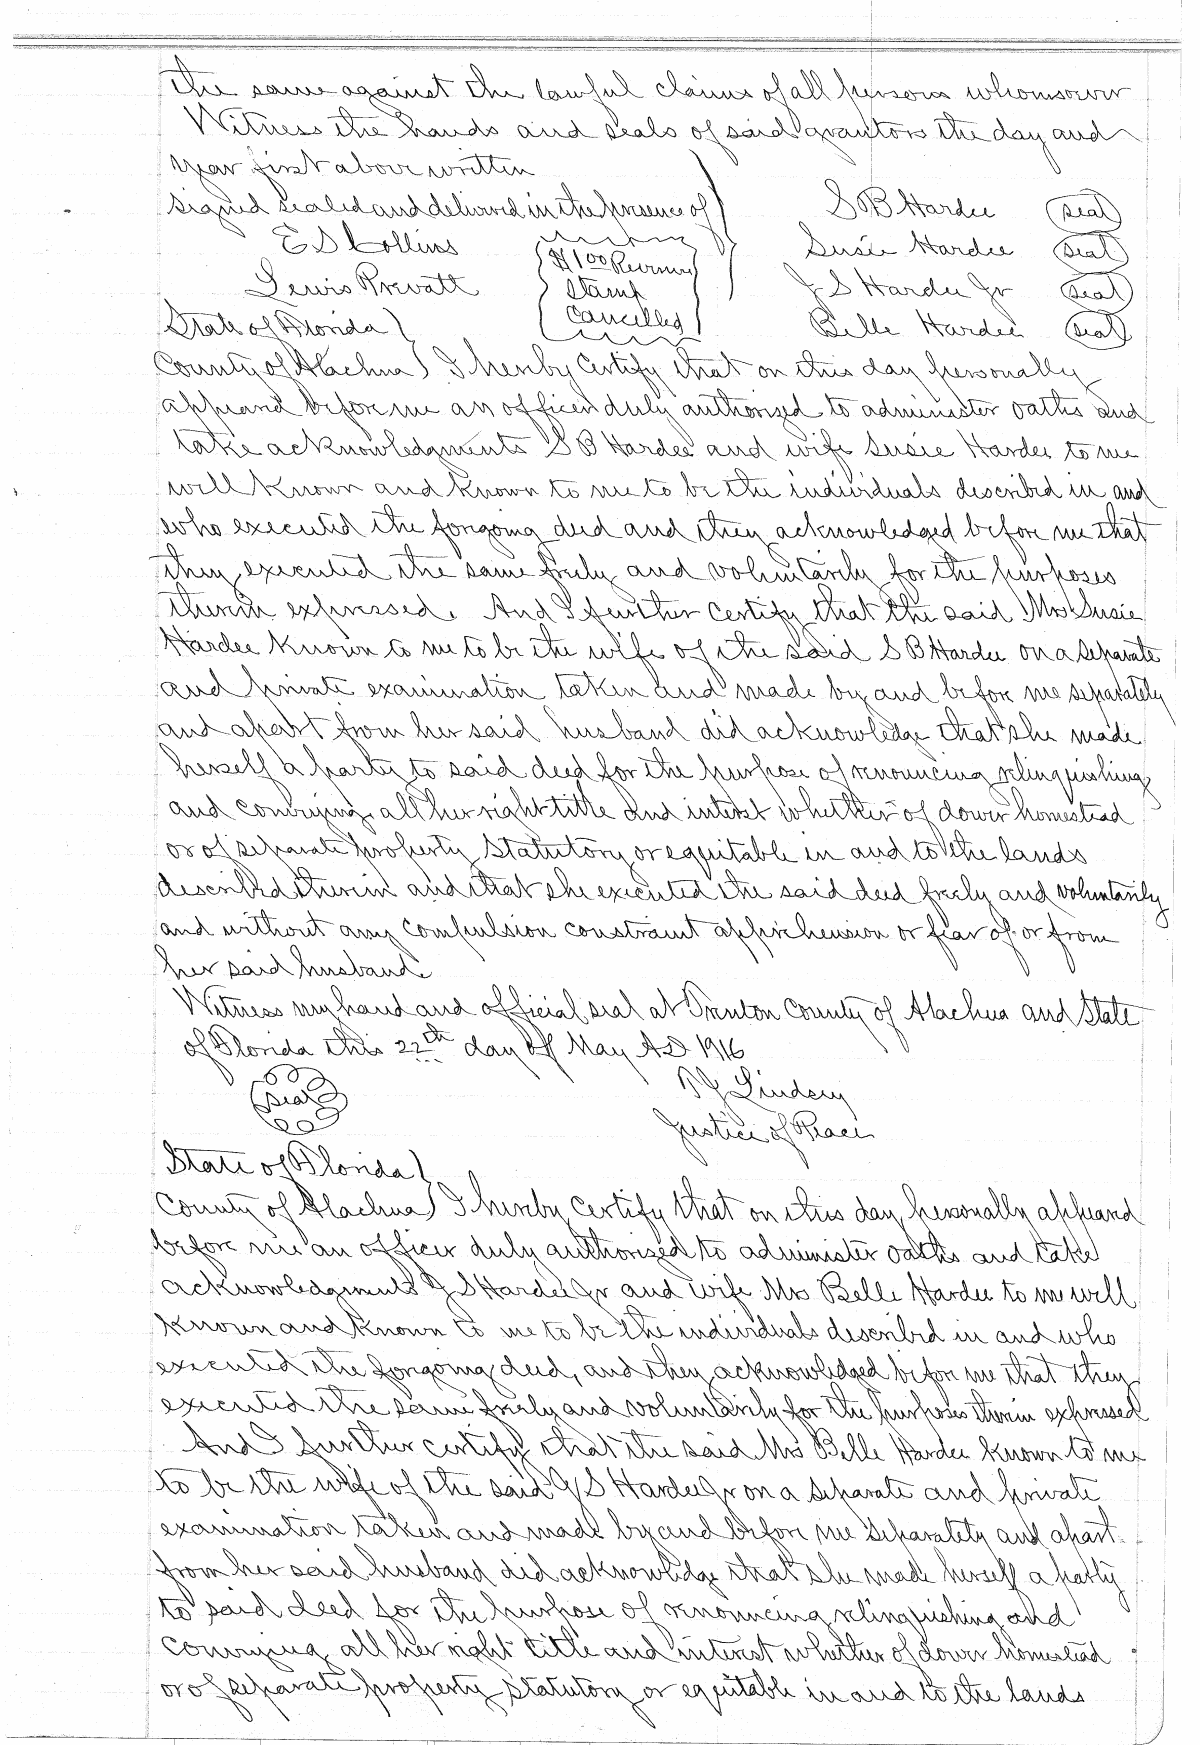 the same against the lawful claims of all persons whomsoever
Witness the hands and seals of said grantors the day and
year first above written
signed sealed and delivered in the presence of
S B Hardee (seal)
E S Collins
Susie Hardee (seal)
$1.00 Revenue
Stamp
Cancelled
Lewis Prevatt
J S Hardee Jr (seal)
State of Florida
Belle Hardee (seal)
County of Alachua I hereby Certify that on this day personally
appeard before me an officer duly authorized to administer oaths and
take acknowledgments S B Hardee and wife Susie Hardee to me
well known and known to me to be the individuals described in and
who executed the forgoing deed and they acknowledged before me that
they executed the same freely and voluntarily for the purposes
therein expressed. And I further certify that the said Mrs Susie
Hardee known to me to be the wife of the said S B Hardee on a separate
and private examination taken and made by and before me separately
and apart from her said husband did acknowledge that she made
herself a party to said deed for the purpose of renouncing relinquishing
and conveying all her right title and interest whether of dower homestead
or of separate property statutory or equitable in and to the lands
described therein and that she executed the said deed freely and voluntarily
and without any Compulsion constraint apprehension or fear of or from
her said husband.
Witness my hand and official seal at Trenton County of Alachua and State
of Florida this 22th day of May A.D 1916
(seal)
Lindsey
Justice of Peace
State of Florida
County of Alachua I hereby certify that on this day personally appeard
before me an officer duly authorized to administer oaths and take
acknowledgments J S Hardee Jr and wife Mrs Belle Hardee to me well
known and known to me to be the individuals described in and who
executed the forgoing deed, and they acknowledged before me that they
executed the same freely and voluntarily for the purposes therein expressed
And I further certify that the said Mrs Belle Hardee known to me
to be the wife of the said J S Hardee Jr on a separate and private
examination taken and made by and before me separately and apart
from her said husband did acknowledge that she made herself a party
to said deed for the purpose of renouncing relinquishing and
conveying all her right title and interest whether of dower homestead
or of separate property statutory or equitable in and to the lands